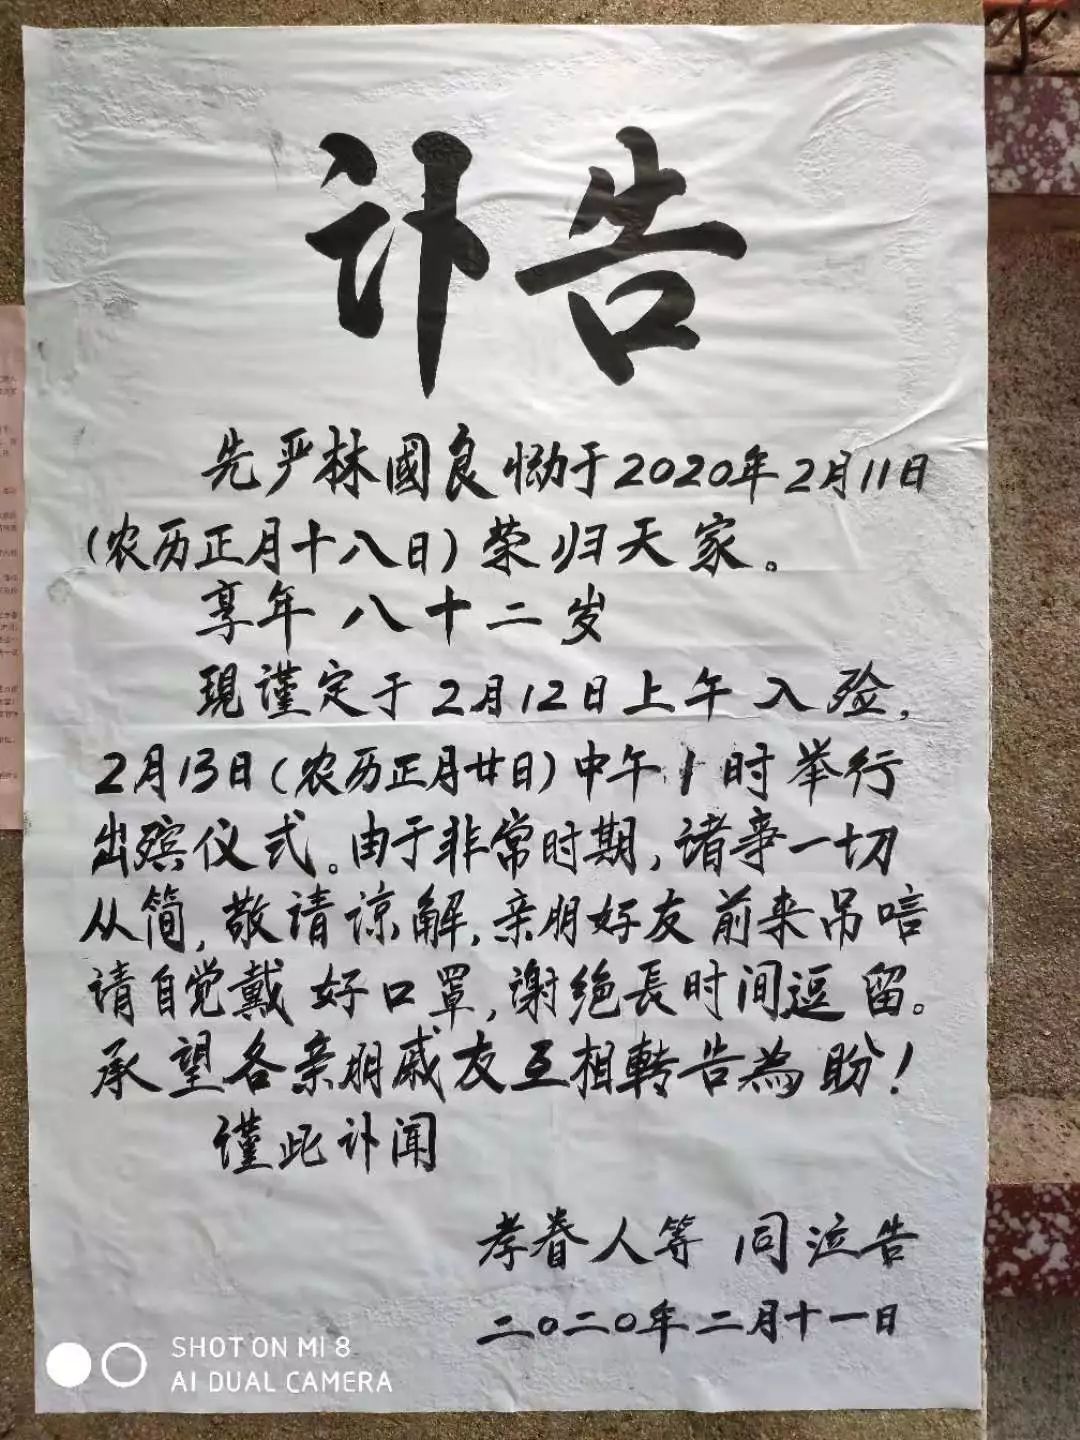 讣告
先严林國良恸于2020年2月11日
(农历正月十八日)荣归天家。
享年八十二岁
現谨定于2月12日上午入殓,
2月13日(农历正月廿日)中午1时举行
出殡仪式。由于非常时期,诸事一切
从简,敬请谅解,亲朋好友前来吊唁
请自觉戴好口罩,谢绝長时间逗留。
承望各亲朋戚友互相转告為盼!
谨此讣闻
孝眷人等同泣告
二〇二〇年二月十一日
SHOT ON MI 8
AI DUAL CAMERA